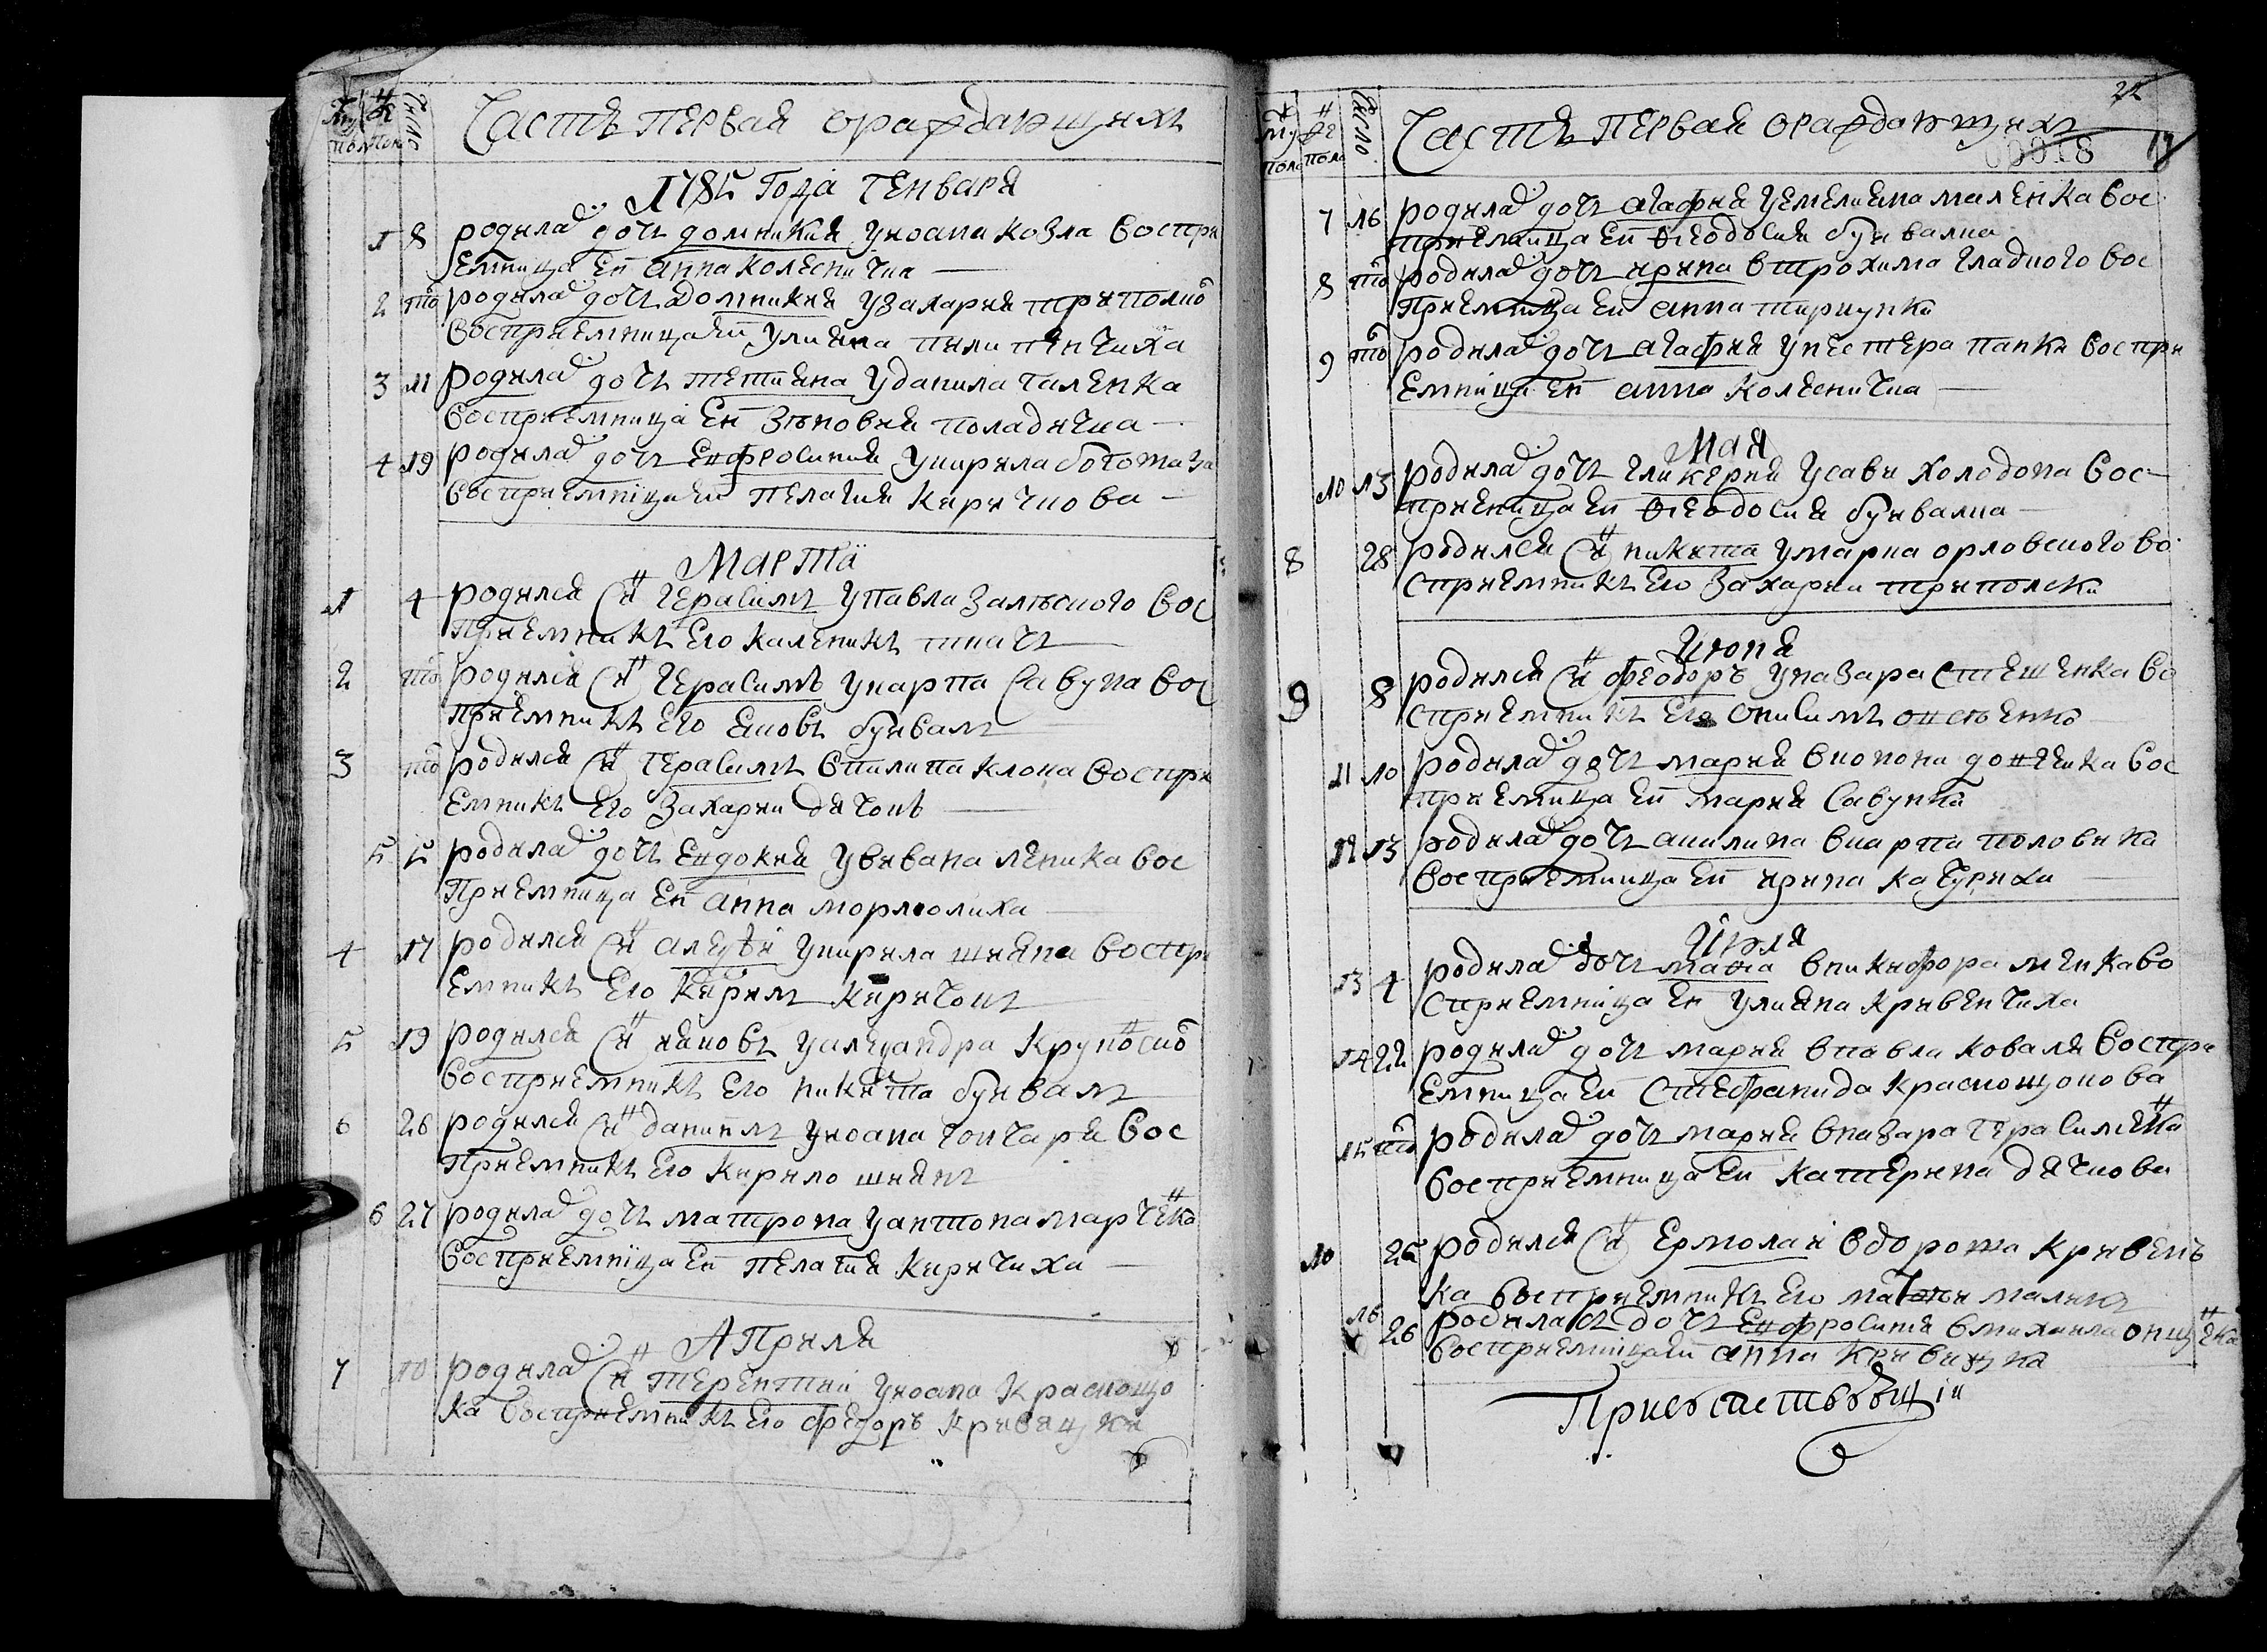 Часть первая ораждающихъ
1785 Года генваря
1 8 родила дочъ домникия уиоана козла воспри
емница ей анна колеснична
2 то родила дочъ домникия узахария триполко
восприемница ей улияна
3 11 родила дочъ тетияна уданила галенка
восприемница ей зѣновия
4 19 родила дочъ ейфросиния укирила
восприемница ей пелагия киричкова
Марта
1 4 родился сн герасимъ упавла залѣского вос
приемникъ его каленикъ ткачъ
2 то родился сн герасимъ укарпа савуна вос
приемникъ его яковъ буйвалъ
3 то родился сн герасимъ впилипа клока воспри
емникъ его захарии дячокъ
5 5 родила дочъ ейдокия увивана леника вос
приемница ей анна
4 17 родился сн алеѯѣй укирила шияна воспри
емникъ его кирилъ киричокъ
5 19 родился сн яковъ уалеѯандра
восприемникъ его никита буйвалъ
6 26 родился сн даниилъ уиоана гончаря вос
приемникъ его кирило шиянъ
6 27 родила дочъ матрона уантона марченка
восприемница ей пелагия киричиха
Априля
7 10 родила сн терентий уиоана краснощо
ка восприемникъ его федоръ кривицки
22
Часть первая ораждающихъ
00018
7 16 родила дочъ агафия уемелияна маленка вос
приемница ей ѳеодосия буйвална
8 то родила дочъ ирина втрохима гладкого вос
приемница ей анна
9 то родила дочъ агафия унестера папки воспри
емница ей анна колеснична
Мая
10 13 родила дочъ гликерия усави холодона вос
приеница ей ѳеодосия буйвална
8 28 родился сн никита умарка орловского во
сприемникъ его захарий триполски
Июня
9 8 родился сн феодоръ уназара стешенка во
сприемникъ его онисимъ
11 10 родила дочъ мария
приемница ей мария савунка
12 13 родила дочъ акилина вкарпа половика
восприемница ей ирина качуриха
Июля
13 4 родила дочъ вникифора во
сприемница ей улияна кривенчиха
14 22 родила дочъ мария впавла коваля воспри
емница ей стефанида краснощокова
15 то родила дочъ мария вназара герасименка
восприемница ей катерина дячкова
10 25 родился сн ермолай вдороша кривень
ка восприемникъ его
16 26 родилася дочъ ейфросиния вмихаила
восприемница ей анна кривицка